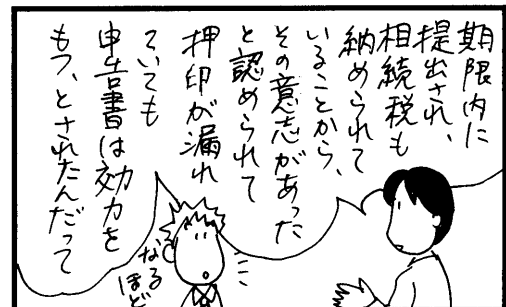 期限内に
提出され、
相続税も
納められて
いることから、
その意志があった
と認められて
押印が漏れ
ていても
申告書は効力を
もつ、とされたんだって
なる
ほど